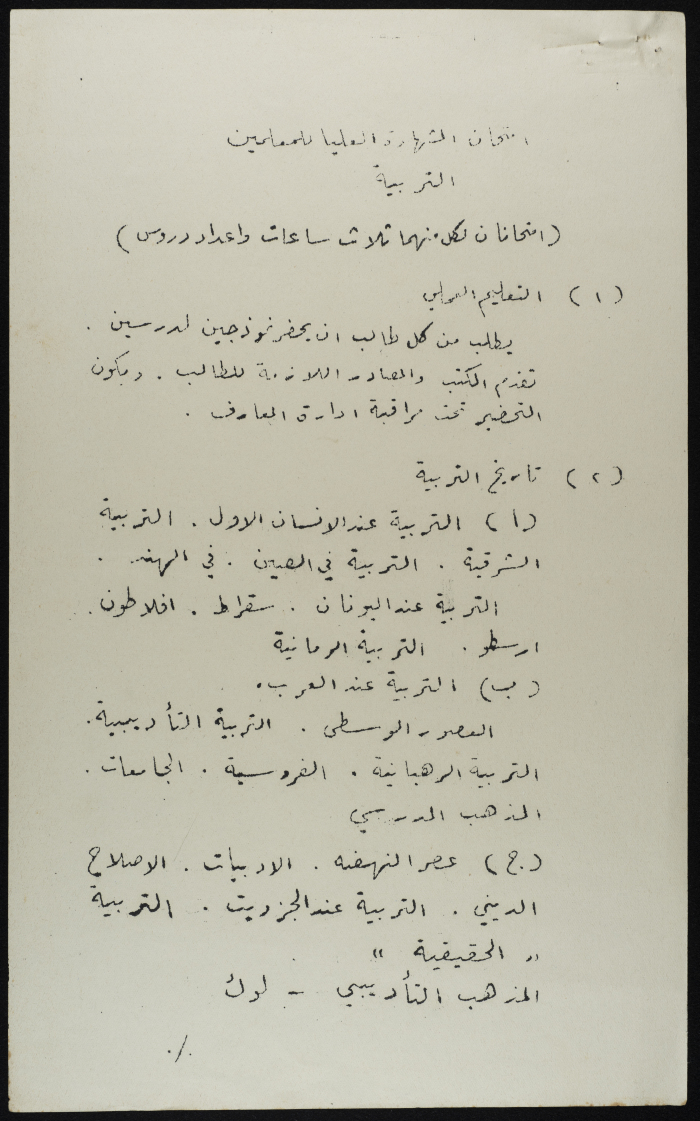 امتحان الشهادة العليا للمعلمين
التربية
(امتحانان لكل منهما ثلاث ساعات واعداد دروس)
(١) التعليم العملي
يطلب من كل طالب ان يحضر نموذجين لدرسين .
تقدم الكتب والمصادر اللازمة للطالب . ويكون
التحضير تحت مراقبة ادارة المعارف .
(٢) تاريخ التربية
(أ) التربية عند الانسان الاول . التربية
الشرقية . التربية في الصين . في الهند .
التربية عند اليونان . سقراط . افلاطون .
ارسطو . التربية الرمانية
(ب) التربية عند العرب .
العصور الوسطى . التربية التأديبية .
التربية الرهبانية . الفروسية . الجامعات .
المذهب المدرسي
(ج) عصر النهضه . الادبيات . الاصلاح
الديني . التربية عند الجزويت . التربية
" الحقيقية "
المذهب التأديبي - لوك
./.